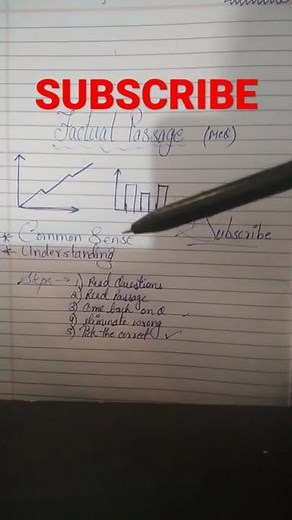 SUBSCRIBE
Factual Passage (MCQ)
Subscribe
* Common Sense
* Understanding
Steps → 1) Read Questions
2) Read Passage
3) Come back on Q
4) eliminate wrong
5) Pick the correct